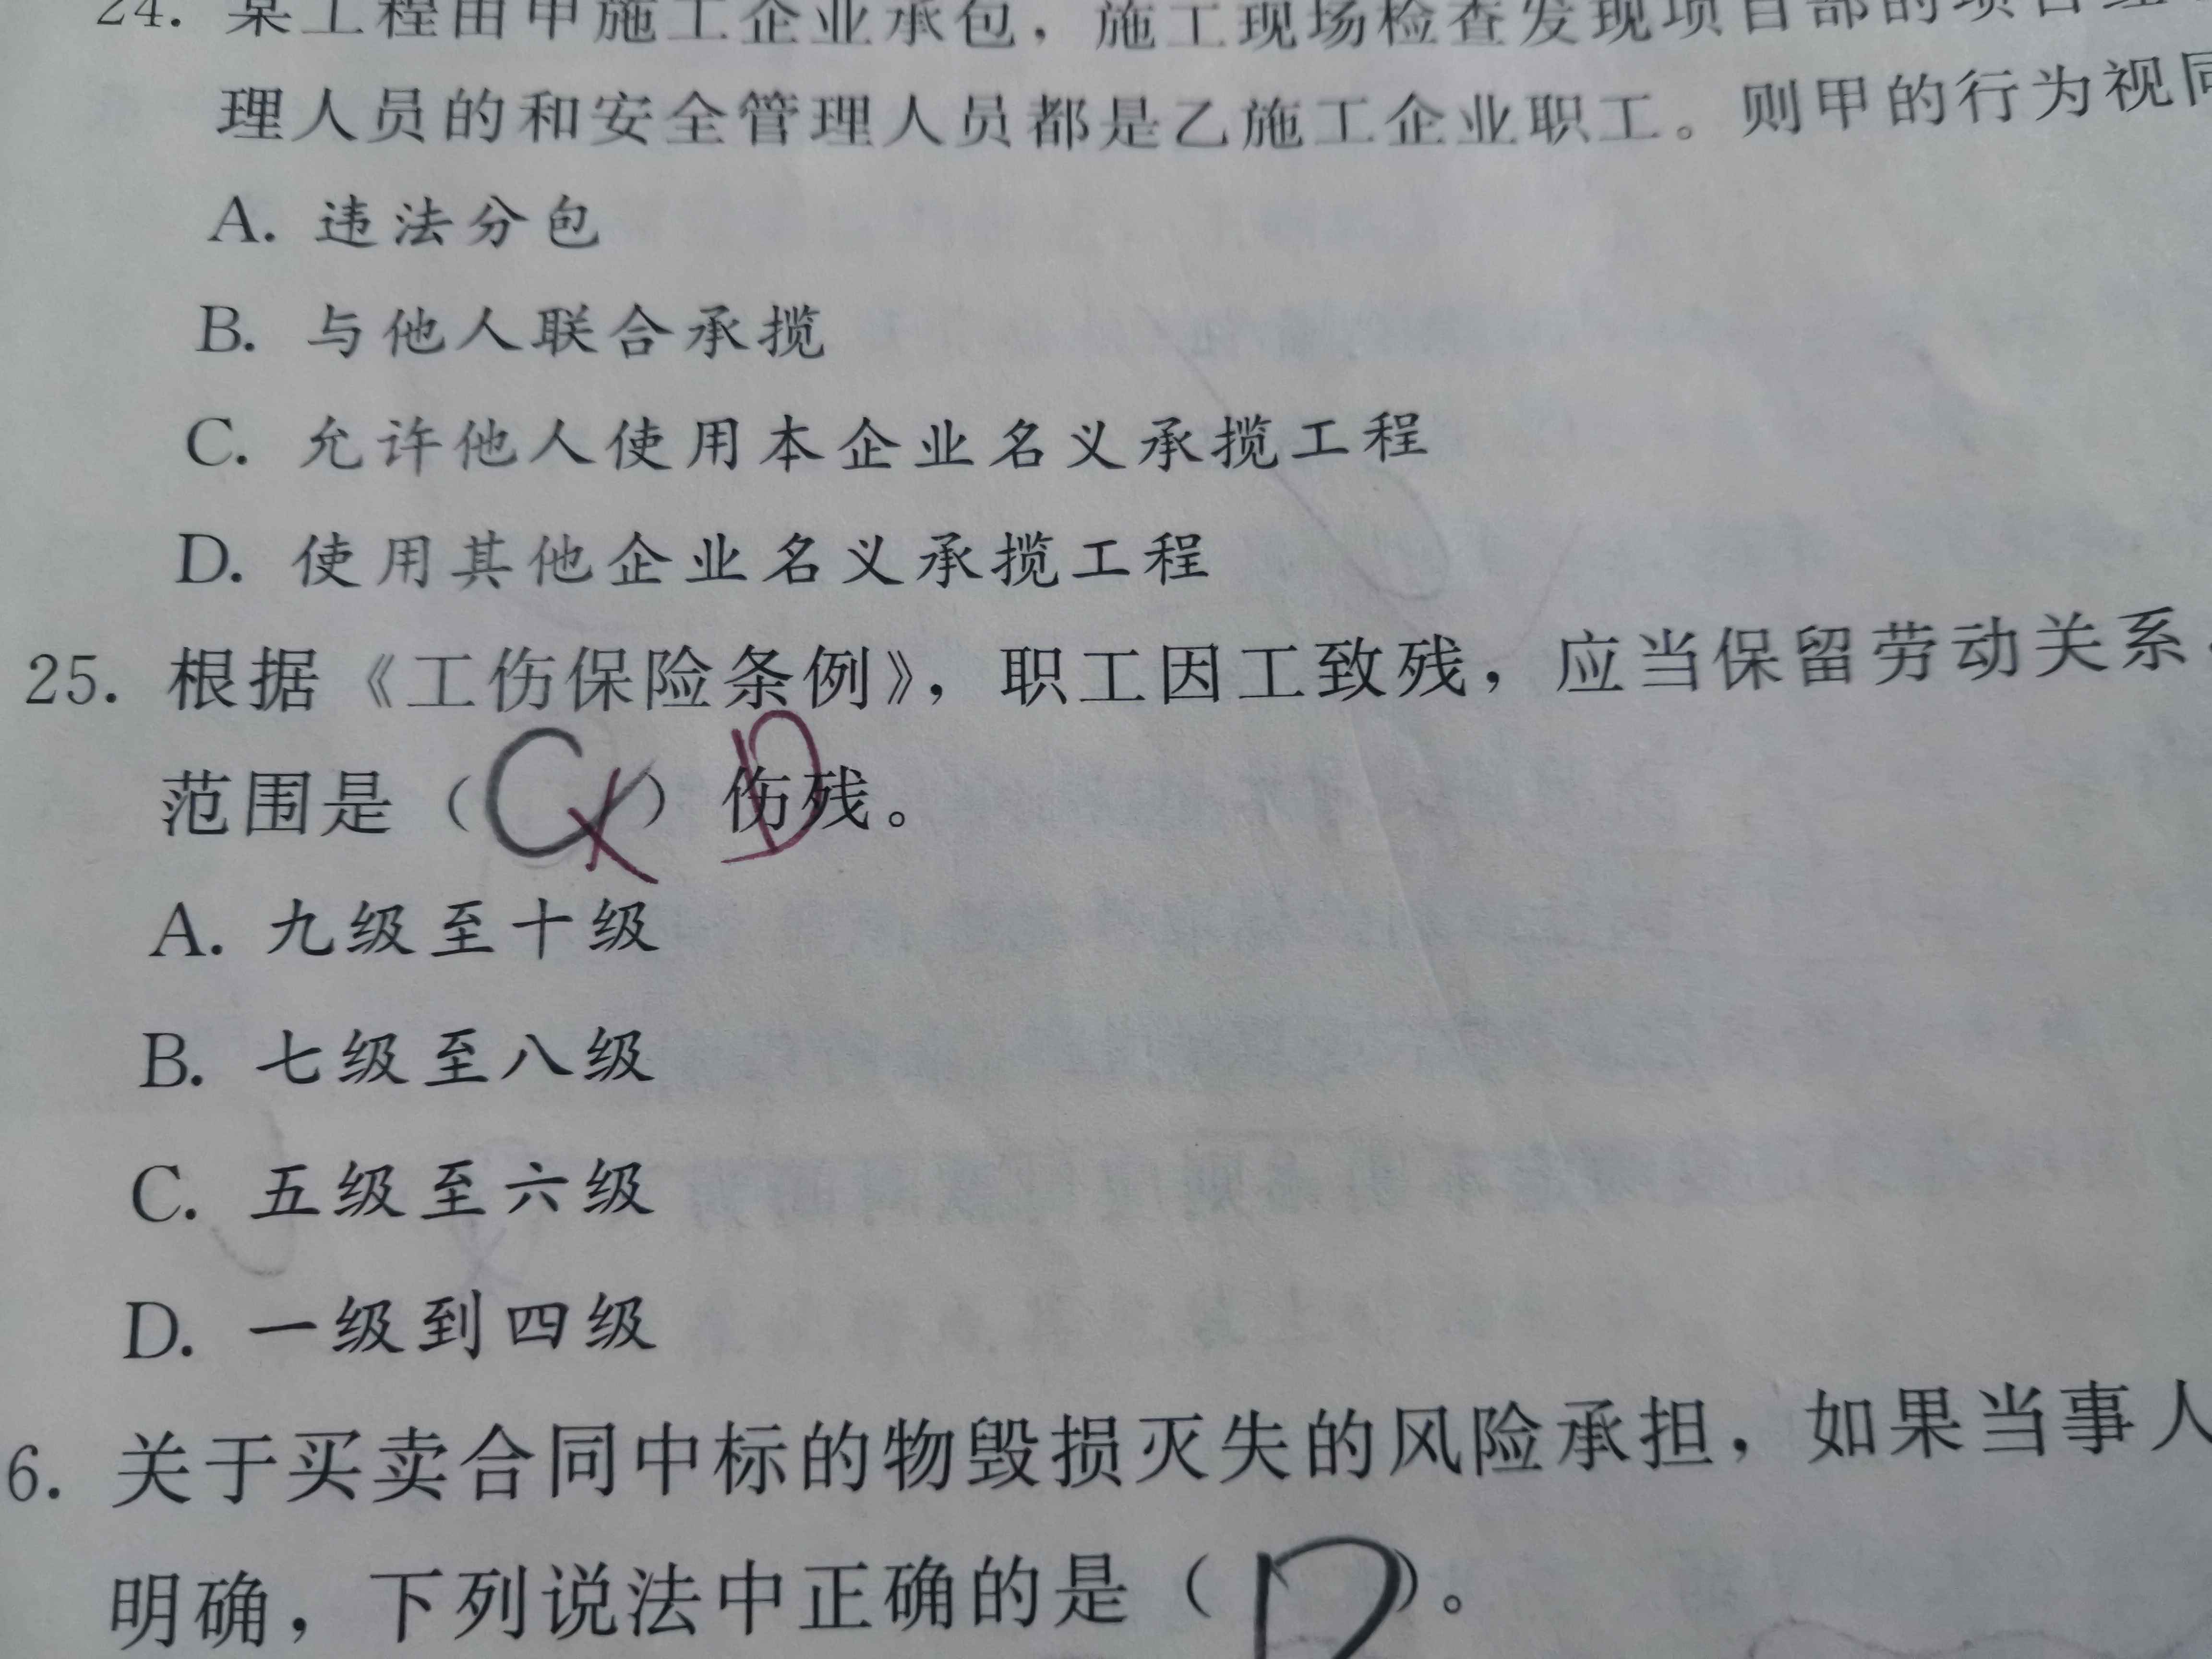 24. 某工程由甲施工企业承包，施工现场检查发现项目部的项目经
理人员的和安全管理人员都是乙施工企业职工。则甲的行为视同
A. 违法分包
B. 与他人联合承揽
C. 允许他人使用本企业名义承揽工程
D. 使用其他企业名义承揽工程
25. 根据《工伤保险条例》，职工因工致残，应当保留劳动关系
范围是（C）伤残。 D
A. 九级至十级
B. 七级至八级
C. 五级至六级
D. 一级到四级
6. 关于买卖合同中标的物毁损灭失的风险承担，如果当事人
明确，下列说法中正确的是（D）。